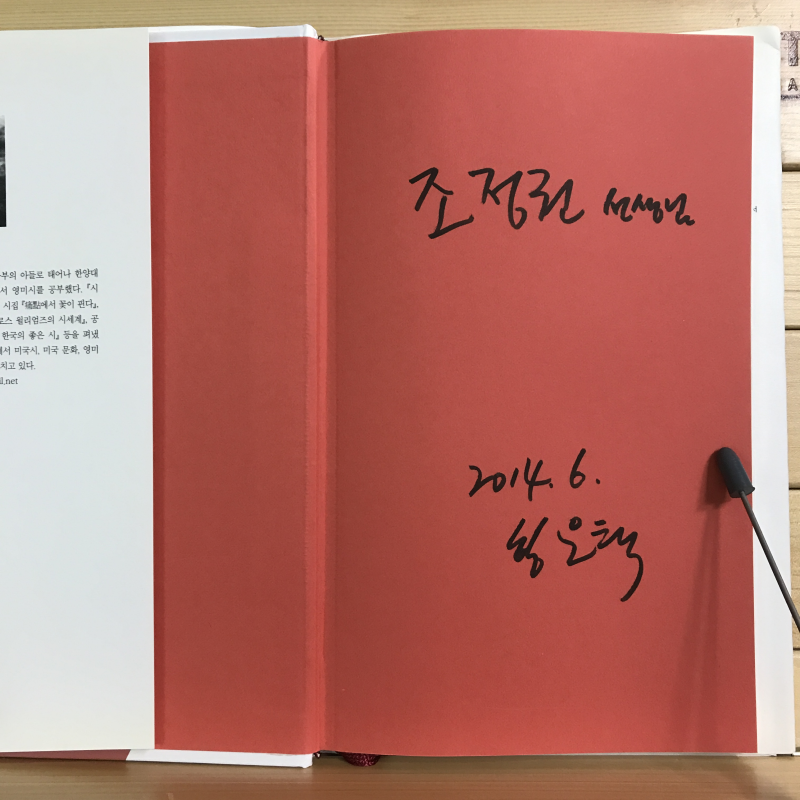 부의 아들로 태어나 한양대
서 영미시를 공부했다. 『시
시집 『痛點에서 꽃이 핀다』,
로스 윌리엄즈의 시세계』, 공
한국의 좋은 시』 등을 펴냈
에서 미국시, 미국 문화, 영미
치고 있다.
il.net
조정권 선생님
2014. 6.